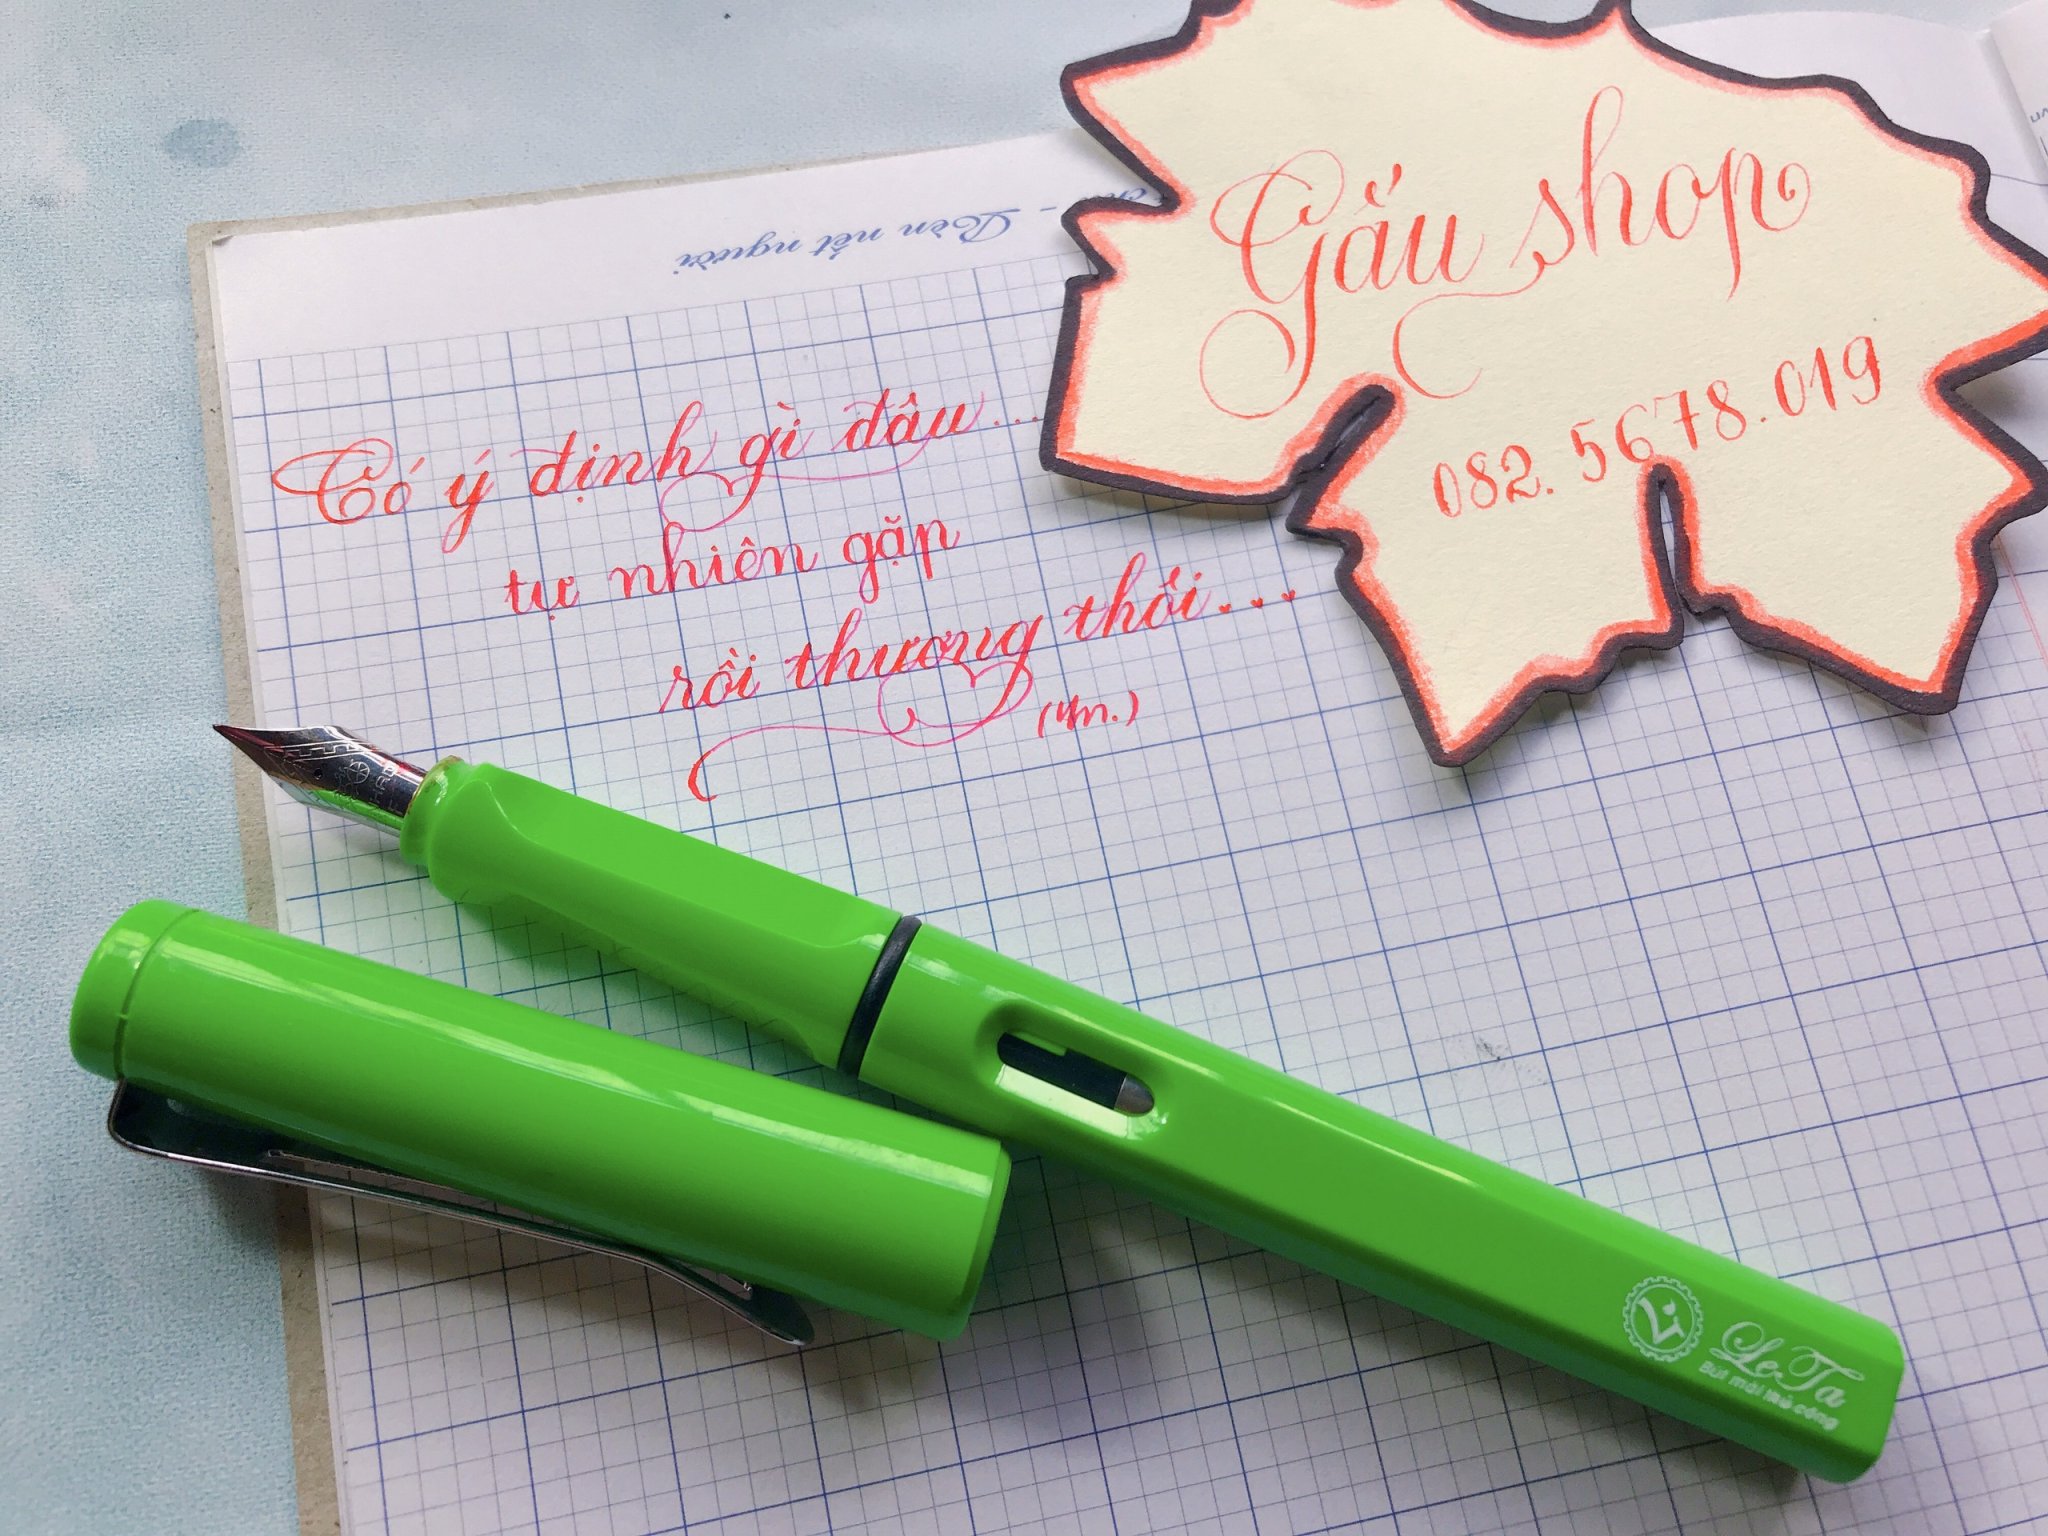 Gấu shop
082.5678.019
Rèn nết người
Có ý định gì đâu...
tự nhiên gặp
rồi thương thôi...
LeTa
Bút mài thủ công